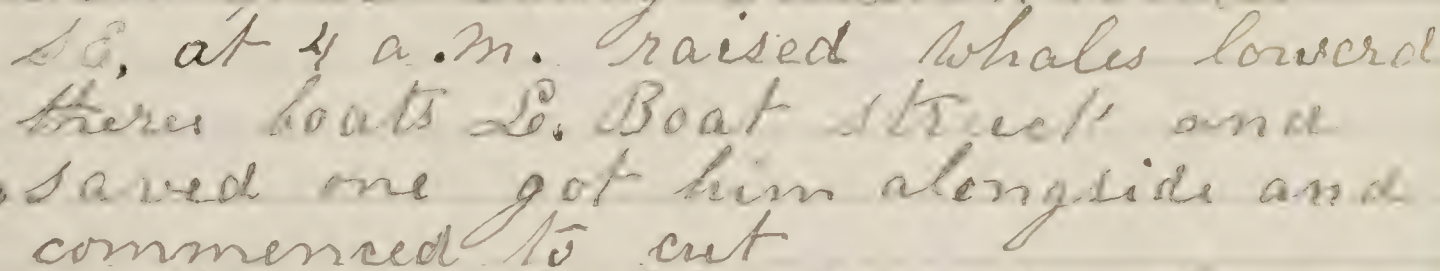 SE, at 4 a.m. raised whales lowerd
there boats L. Boat struck and
saved one got him alongside and
commenced to cut